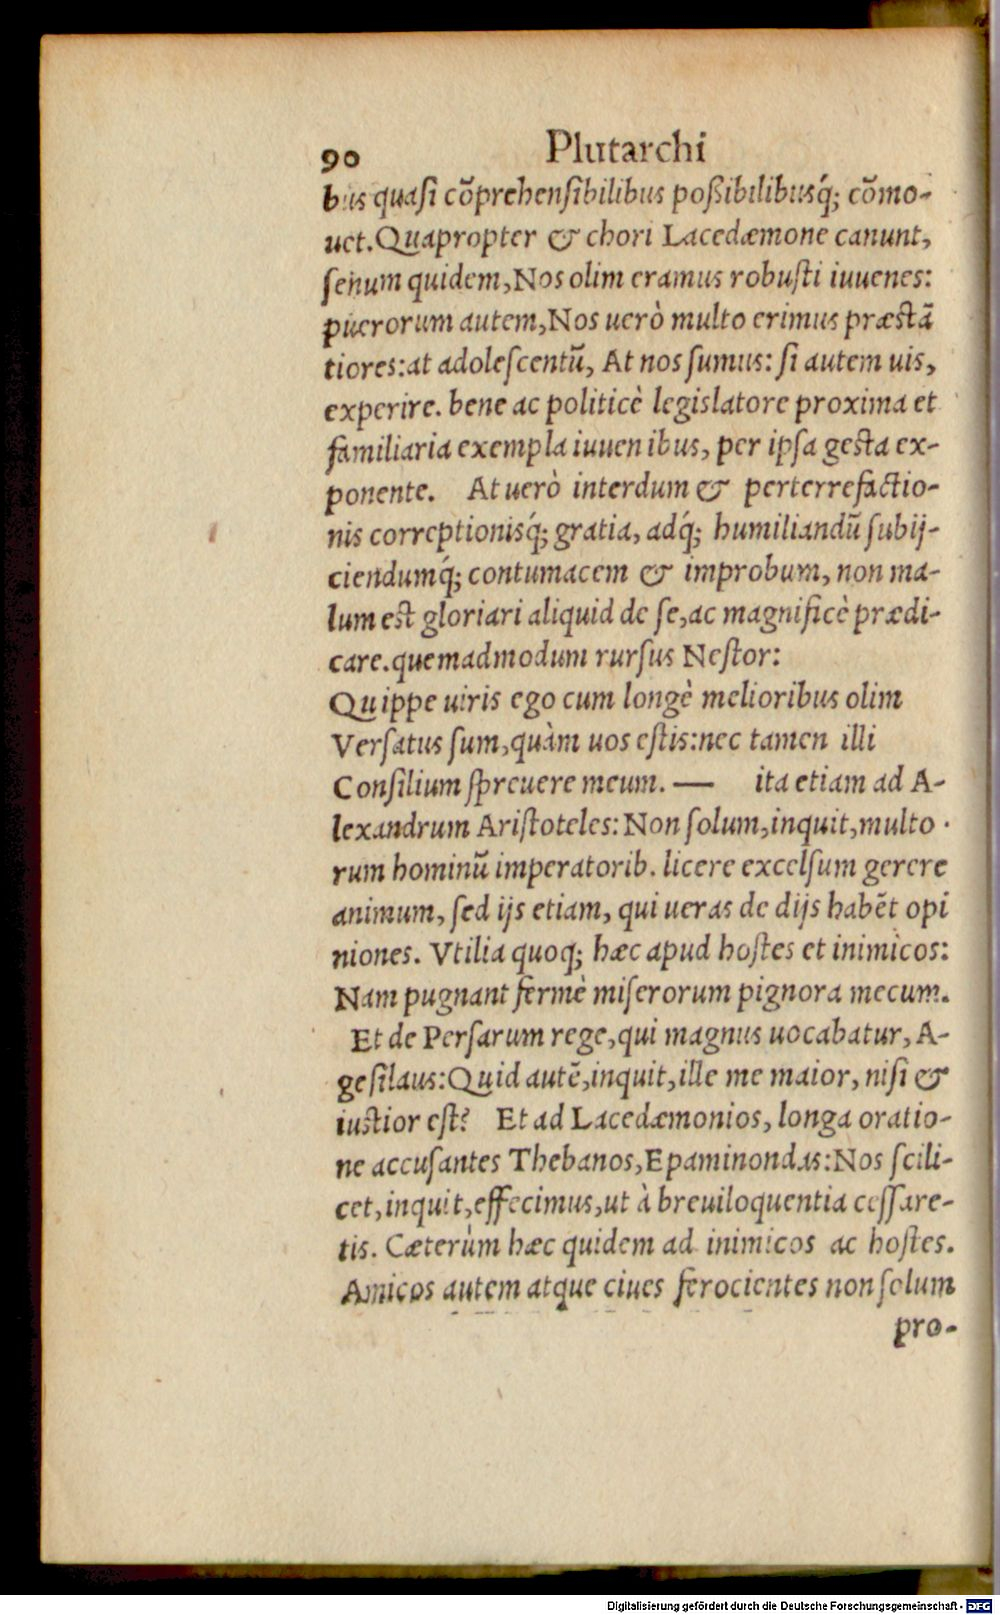 90 Plutarchi
bus quasi cõprehensibilibus poßibilibusq́; cõmo-
uet. Quapropter & chori Lacedæmone canunt,
senum quidem, Nos olim eramus robusti iuuenes:
puerorum autem, Nos uerò multo erimus præstã
tiores: at adolescentũ, At nos sumus: si autem uis,
experire. bene ac politicè legislatore proxima et
familiaria exempla iuuenibus, per ipsa gesta ex-
ponente. At uerò interdum & perterrefactio-
nis correptionisq́; gratia, adq́; humiliandũ subij-
ciendumq́; contumacem & improbum, non ma-
lum est gloriari aliquid de se, ac magnificè prædi-
care. quemadmodum rursus Nestor:
Quippe uiris ego cum longè melioribus olim
Versatus sum, quàm uos estis: nec tamen illi
Consilium spreuere meum. — ita etiam ad A-
lexandrum Aristoteles: Non solum, inquit, multo
rum hominũ imperatorib. licere excelsum gerere
animum, sed ijs etiam, qui ueras de dijs habẽt opi
niones. Vtilia quoq; hæc apud hostes et inimicos:
Nam pugnant fermè miserorum pignora mecum.
Et de Persarum rege, qui magnus uocabatur, A-
gesilaus: Quid autẽ, inquit, ille me maior, nisi &
iustior est? Et ad Lacedæmonios, longa oratio-
ne accusantes Thebanos, Epaminondas: Nos scili-
cet, inquit, effecimus, ut à breuiloquentia cessare-
tis. Cæterùm hæc quidem ad inimicos ac hostes.
Amicos autem atque ciues ferocientes non solum
pro-
Digitalisierung gefördert durch die Deutsche Forschungsgemeinschaft - DFG